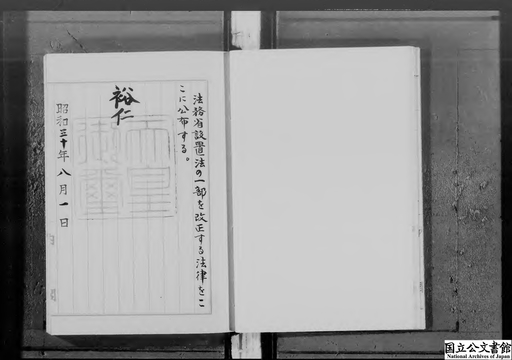 法務省設置法の一部を改正する法律をこ
こに公布する。
裕仁
天皇
御璽
昭和三十年八月一日
国立公文書館
National Archives of Japan